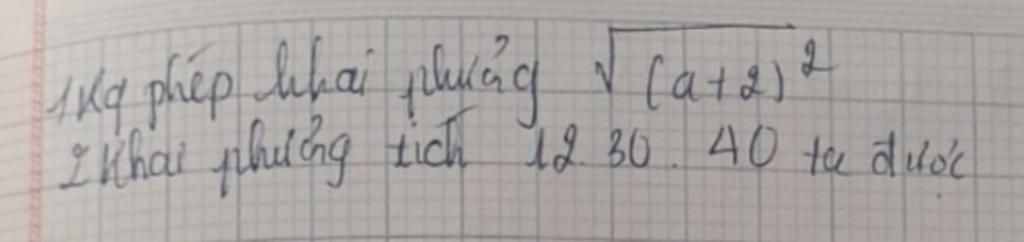 1 Kq phép khai phương √(a+2)²
2 Khai phương tích 12.30.40 ta được